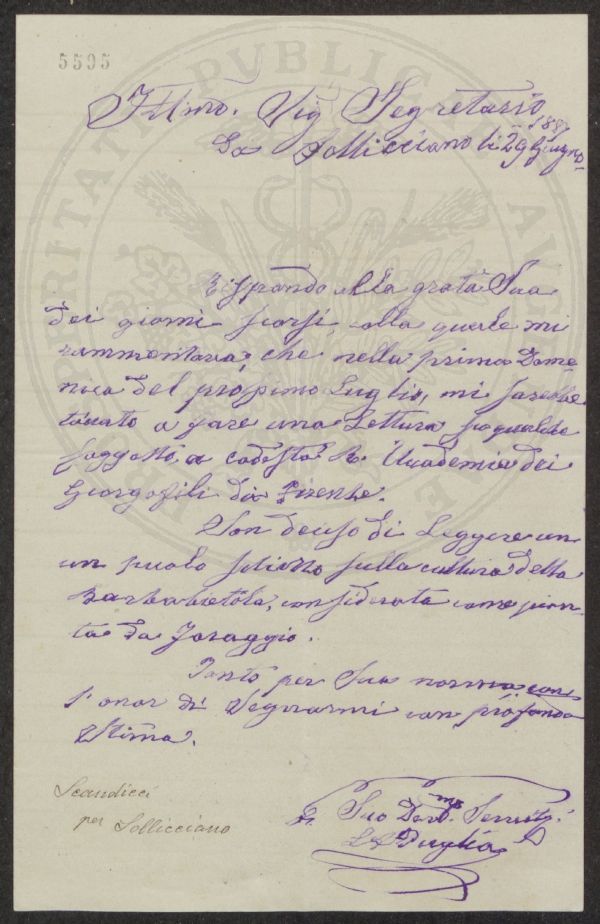 5595
Illmo. Sig Segretario
Da Sollicciano li 29 Giugno 188
Rispondo alla grata Sua
dei giorni scorsi, colla quale mi
rammentava, che nella prima Dome
nica del prossimo Luglio, mi sarebbe
toccato a fare una Lettura su qualche
soggetto, a codesta R. Accademia dei
Georgofili di Firenze.
Son deciso di Leggere un
un piccolo sulla cultura della
Barbabietola, considerata come pian
ta da Foraggio.
Tanto per Sua norma con
l'onor di Segnarmi con profonda
Stima.
Suo Devmo Servitr.
Puglia
Scandicci
per Sollicciano
PUBLICAE
PROSPERITATI
AUGENDAE